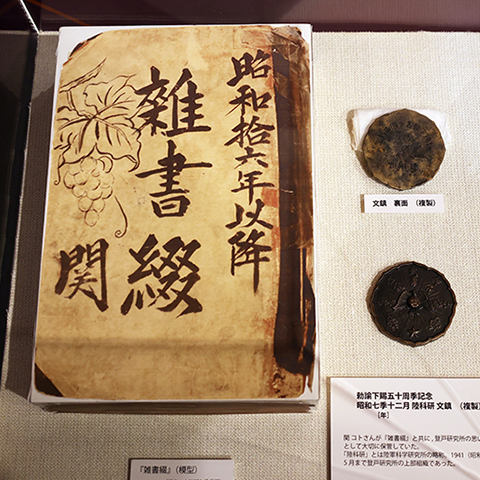 昭和拾六年以降
雑書綴
関
文鎮　裏面　（複製）
勅諭下賜五十周季記念
昭和七季十二月 陸科研 文鎮　（複製）
［年］
関 コトさんが『雑書綴』と共に、登戸研究所の思い
として大切に保管していた。
「陸科研」とは陸軍科学研究所の略称。1941（昭和
5月まで登戸研究所の上部組織であった。
『雑書綴』（模型）